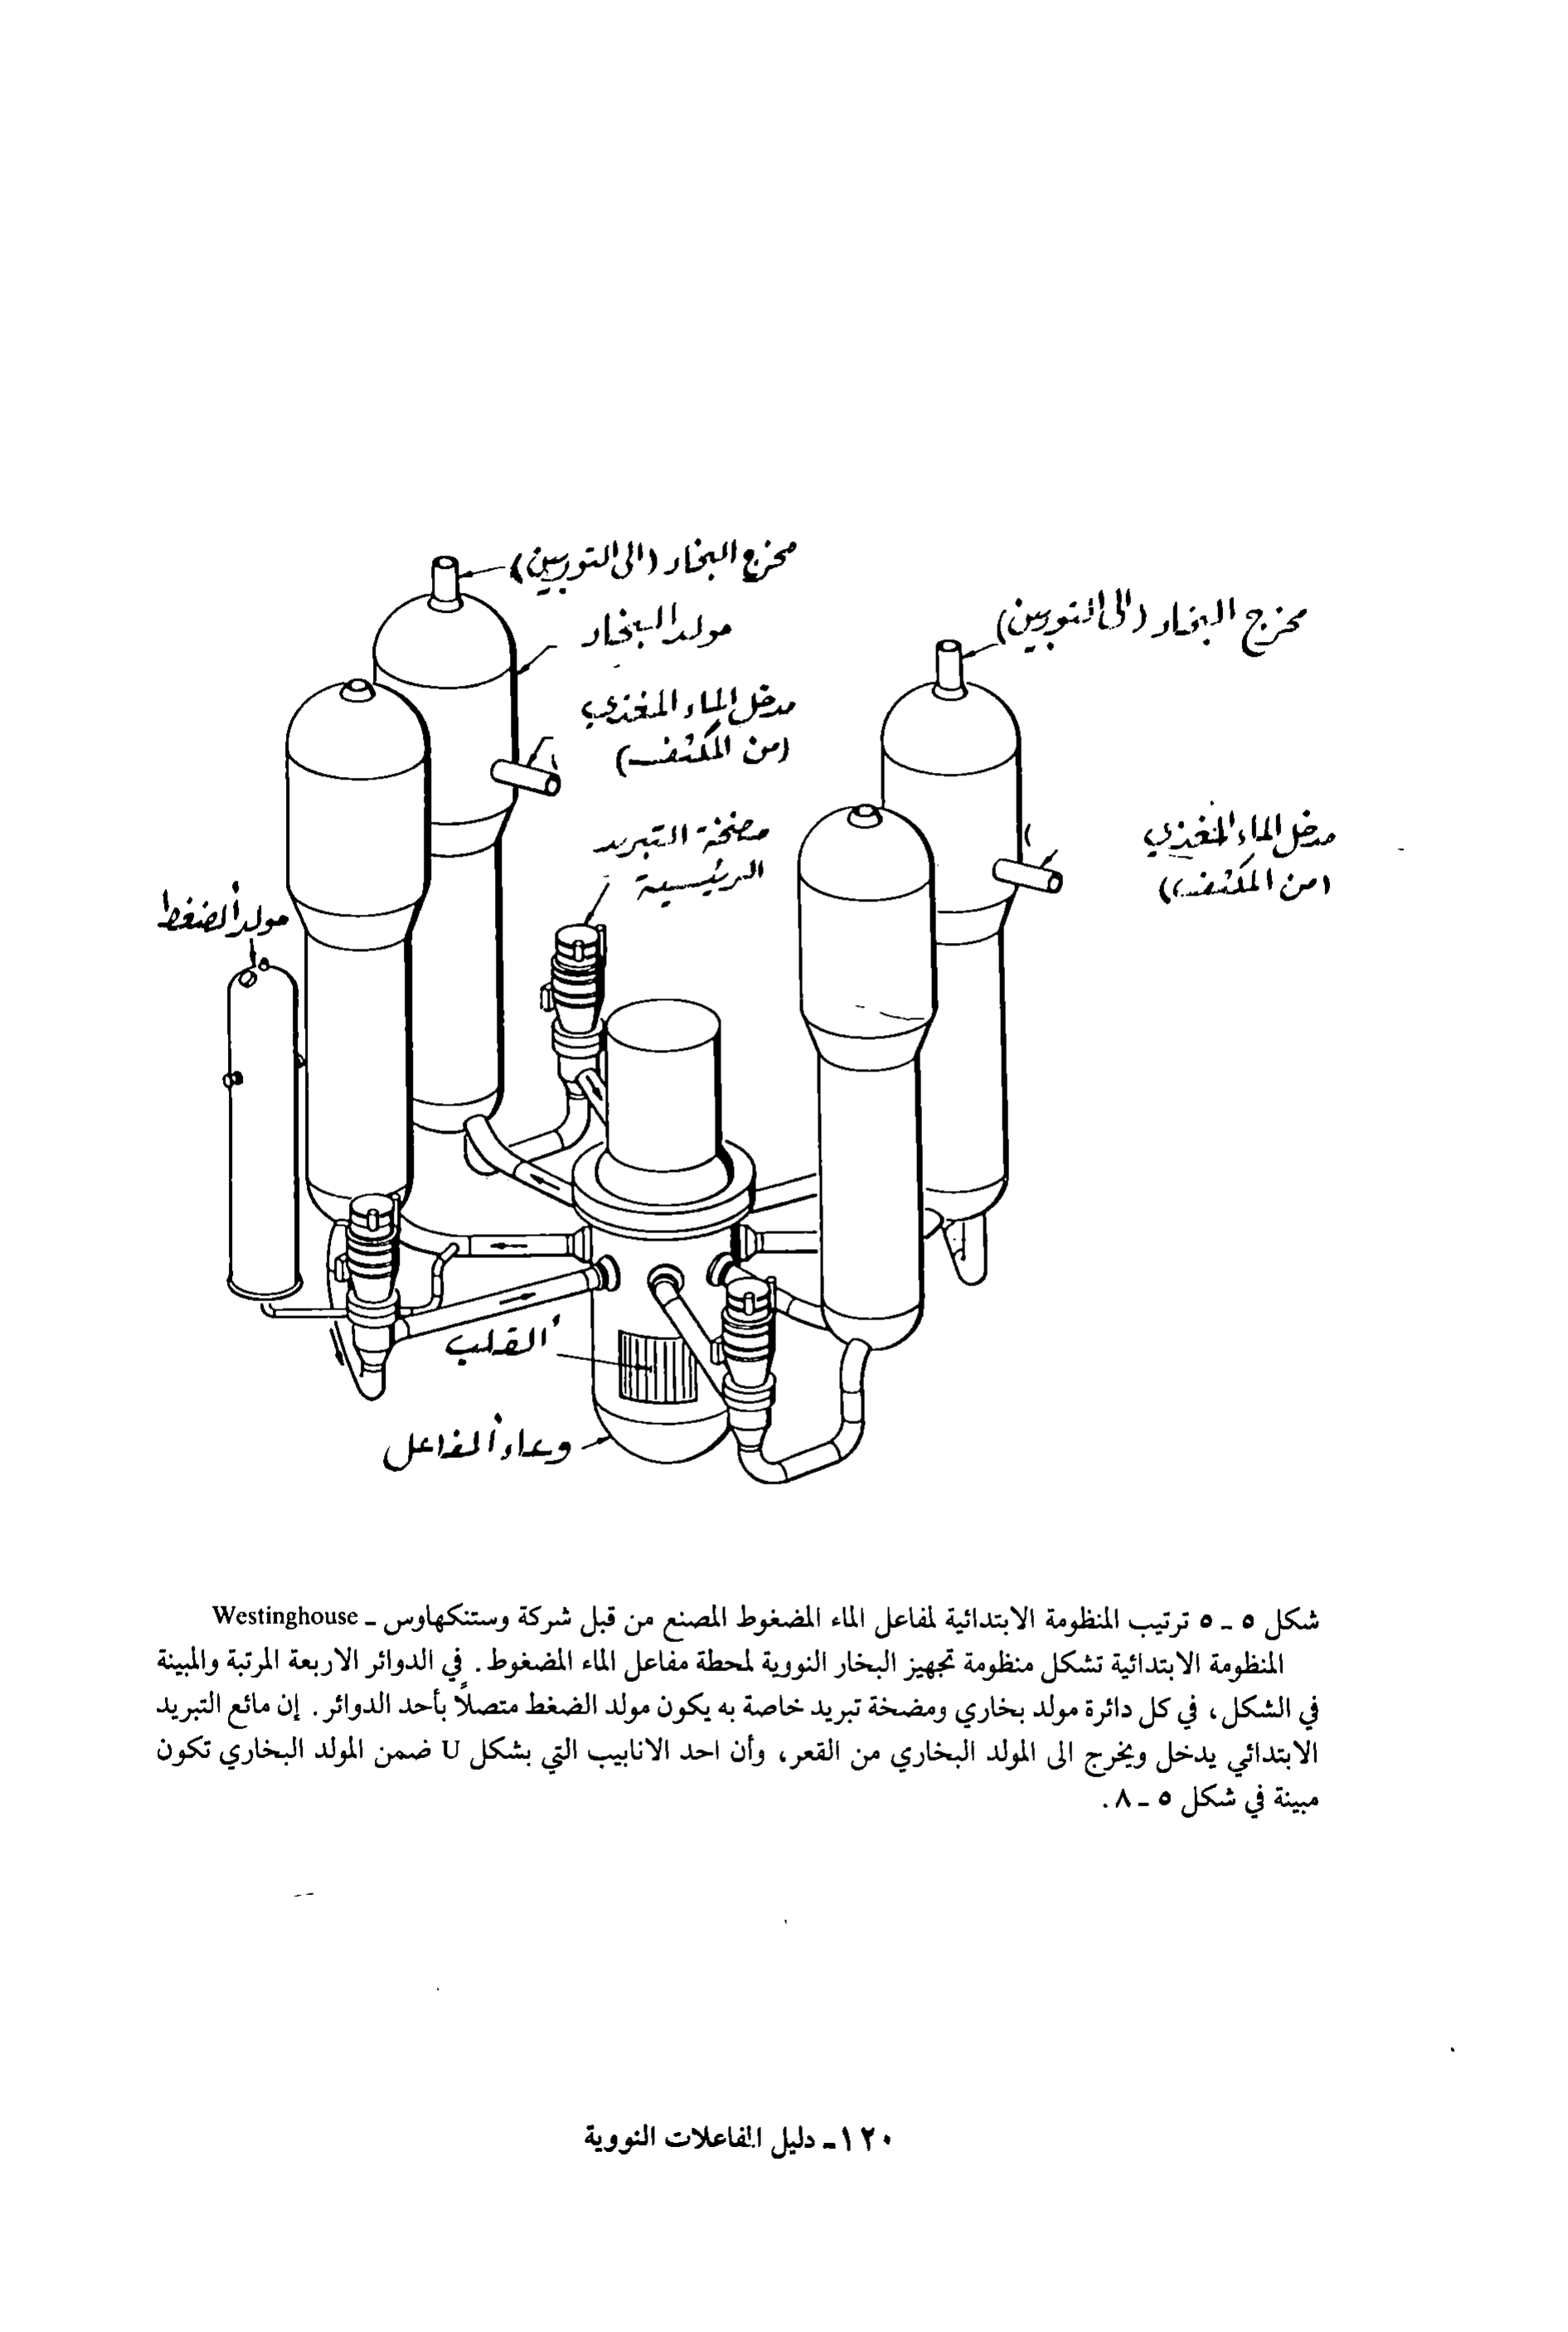 مخرج البخار (الى التوربين)
مولد البخار
مخرج البخار (الى التوربين)
مدخل الماء المغذي
(من المكثف)
مضخة التبريد
الرئيسية
مدخل الماء المغذي
(من المكثف)
مولد الضغط
القلب
وعاء المفاعل
شكل ٥ ـ ٥ ترتيب المنظومة الابتدائية لمفاعل الماء المضغوط المصنع من قبل شركة وستنكهاوس ـ Westinghouse
المنظومة الابتدائية تشكل منظومة تجهيز البخار النووية لمحطة مفاعل الماء المضغوط . في الدوائر الاربعة المرتبة والمبينة
في الشكل ، في كل دائرة مولد بخاري ومضخة تبريد خاصة به يكون مولد الضغط متصلاً بأحد الدوائر . إن مائع التبريد
الابتدائي يدخل ويخرج الى المولد البخاري من القعر، وأن احد الانابيب التي بشكل U ضمن المولد البخاري تكون
مبينة في شكل ٥ ـ ٨ .
١٢٠ـ دليل المفاعلات النووية